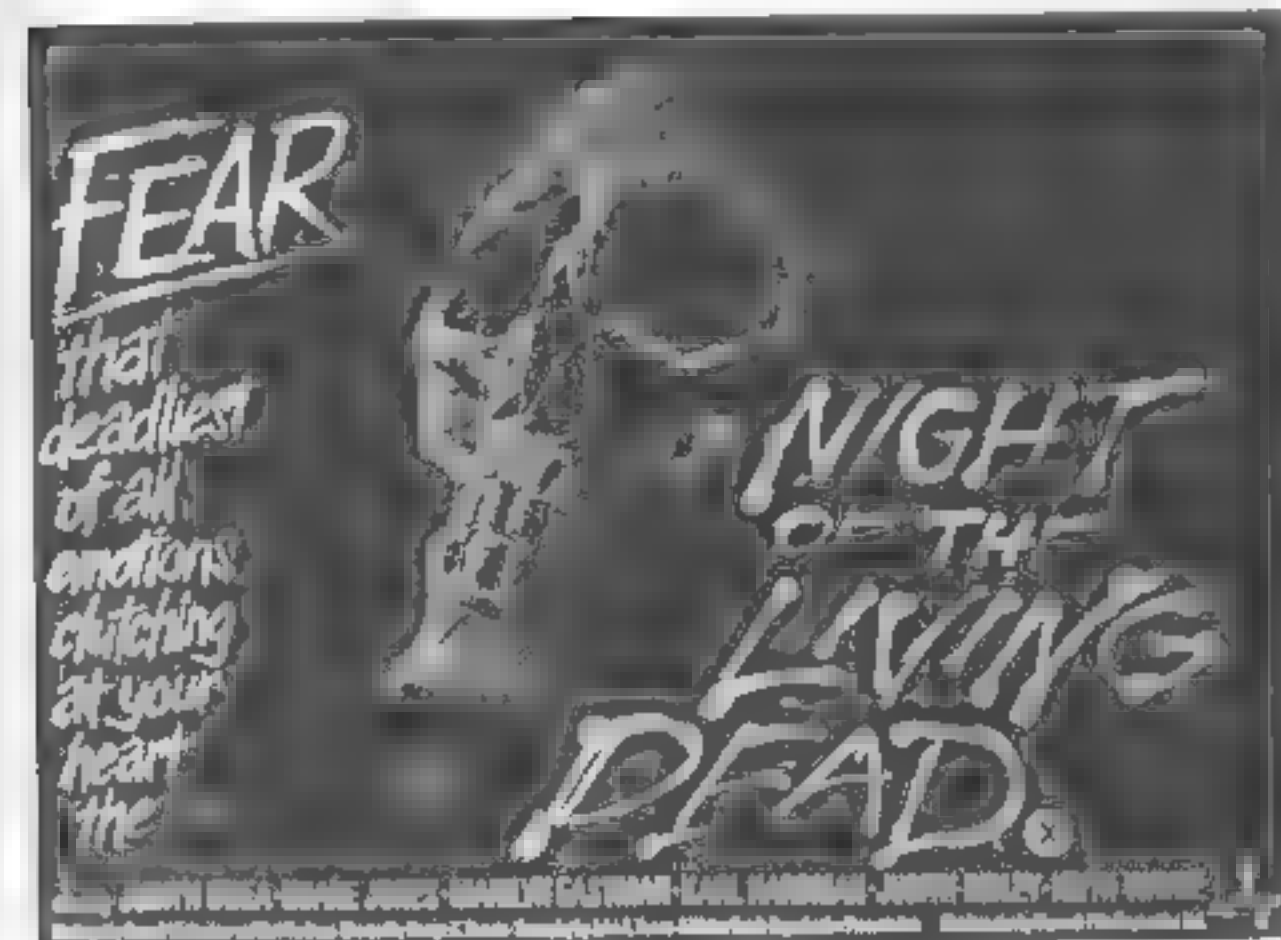 FEAR
that
deadliest
of all
emotions
clutching
at your
heart
the
NIGHT
OF THE
LIVING
DEAD.
X